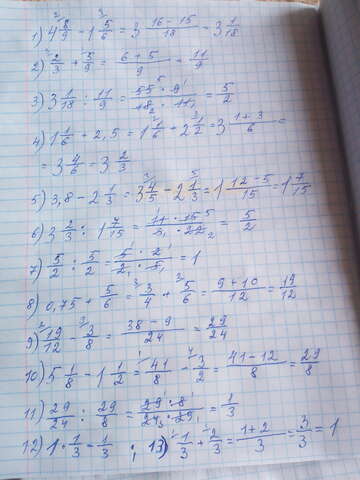 1) 4 8/9 - 1 5/6 = 3 (16-15)/18 = 3 1/18
2) 2/3 + 5/9 = (6+5)/9 = 11/9
3) 3 1/18 : 11/9 = (55⁵ · 9¹)/(18₂ · 11₁) = 5/2
4) 1 1/6 + 2,5 = 1 1/6 + 2 1/2 = 3 (1+3)/6 =
= 3 4/6 = 3 2/3
5) 3,8 - 2 1/3 = 3 4/5 - 2 1/3 = 1 (12-5)/15 = 1 7/15
6) 3 2/3 : 1 7/15 = (11 · 15⁵)/(3₁ · 22₂) = 5/2
7) 5/2 : 5/2 = (5¹ · 2¹)/(2₁ · 5₁) = 1
8) 0,75 + 5/6 = 3/4 + 5/6 = (9+10)/12 = 19/12
9) 19/12 - 3/8 = (38-9)/24 = 29/24
10) 5 1/8 - 1 1/2 = 41/8 - 3/2 = (41-12)/8 = 29/8
11) 29/24 : 29/8 = (29 · 8¹)/(24₃ · 29₁) = 1/3
12) 1 · 1/3 = 1/3 ; 13) 1/3 + 2/3 = (1+2)/3 = 3/3 = 1